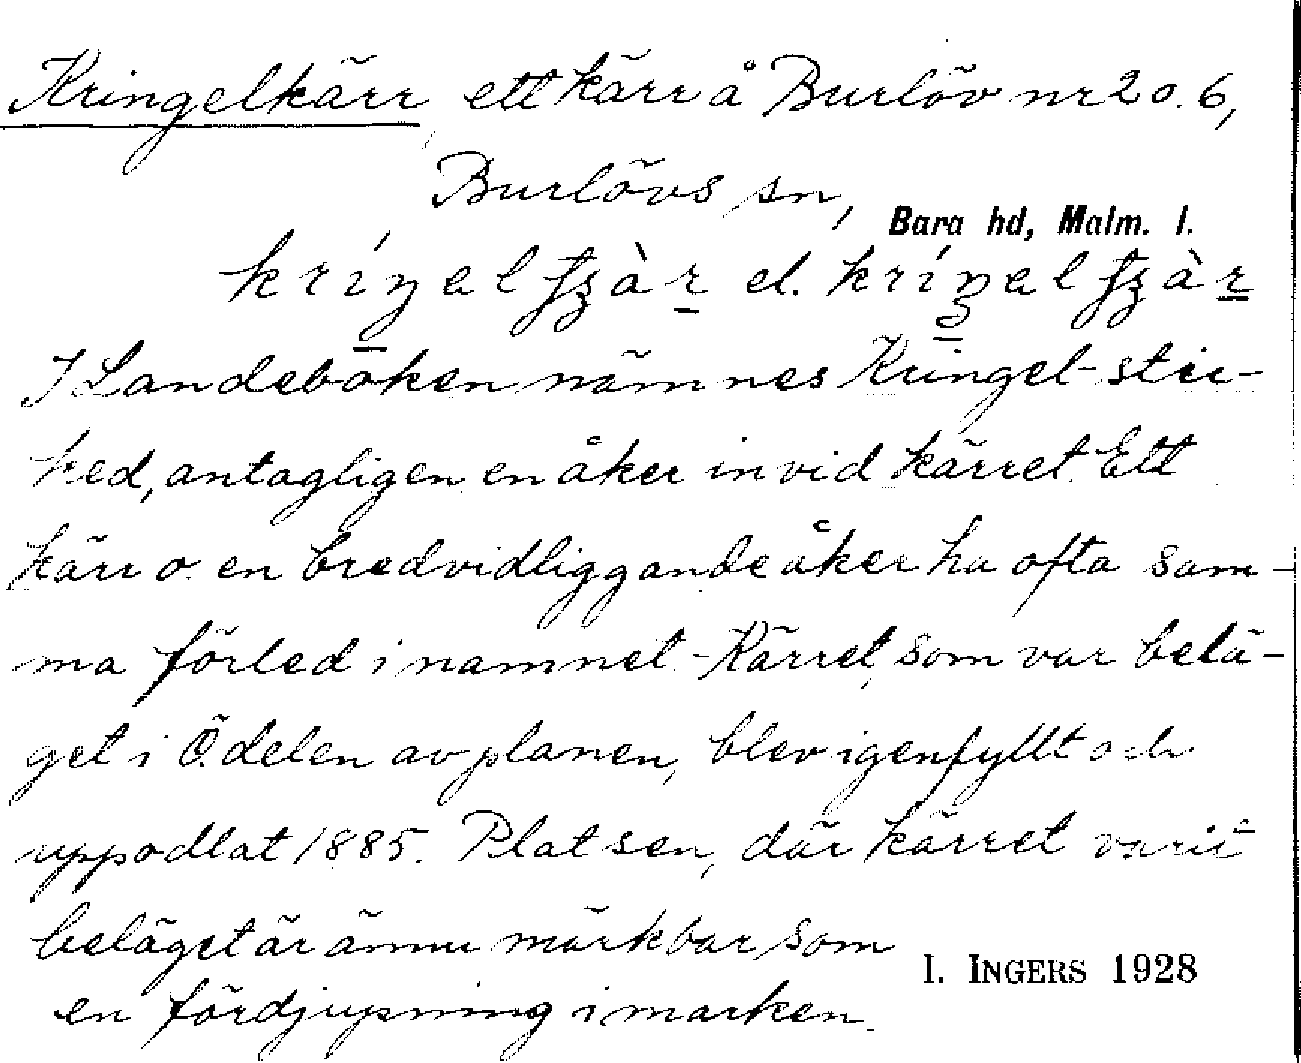 Kringelkärr, ett kärr å Burlöv nr 2 o. 6,
Burlövs sn,
Bara hd, Malm. l.
el.
I Landeböken nämnes Kringel-stic-
ked, antagligen en åker invid kärret. Ett
kärr o. en bredvidliggande åker ha ofta sam-
ma förled i namnet - Kärret, som var belä-
get i Ö. delen av planen, blev igenfyllt och
uppodlat 1885. Platsen, där kärret varit
beläget är ännu märkbar som
I. INGERS 1928
en fördjupning i marken.